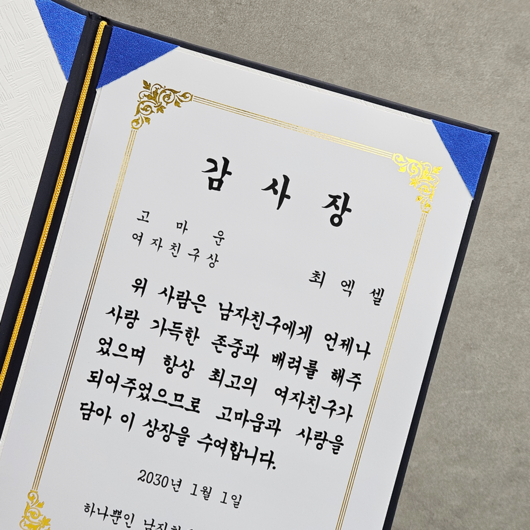 감 사 장
고 마 운
여자친구상
최 엑 셀
위 사람은 남자친구에게 언제나
사랑 가득한 존중과 배려를 해주
었으며 항상 최고의 여자친구가
되어주었으므로 고마움과 사랑을
담아 이 상장을 수여합니다.
2030년 1월 1일
하나뿐인